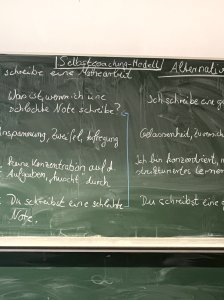 Selbstcoaching-Modell
schreibe eine Mathearbeit
Alternativ
Was ist, wenn ich eine
schlechte Note schreibe?
Ich schreibe eine
Anspannung, Zweifel, Aufregung
Gelassenheit,
keine Konzentration auf d.
Aufgaben, huscht durch
Ich bin konzentriert,
strukturiertes Lernen
Du schreibst eine schlechte
Note.
Du schreibst eine